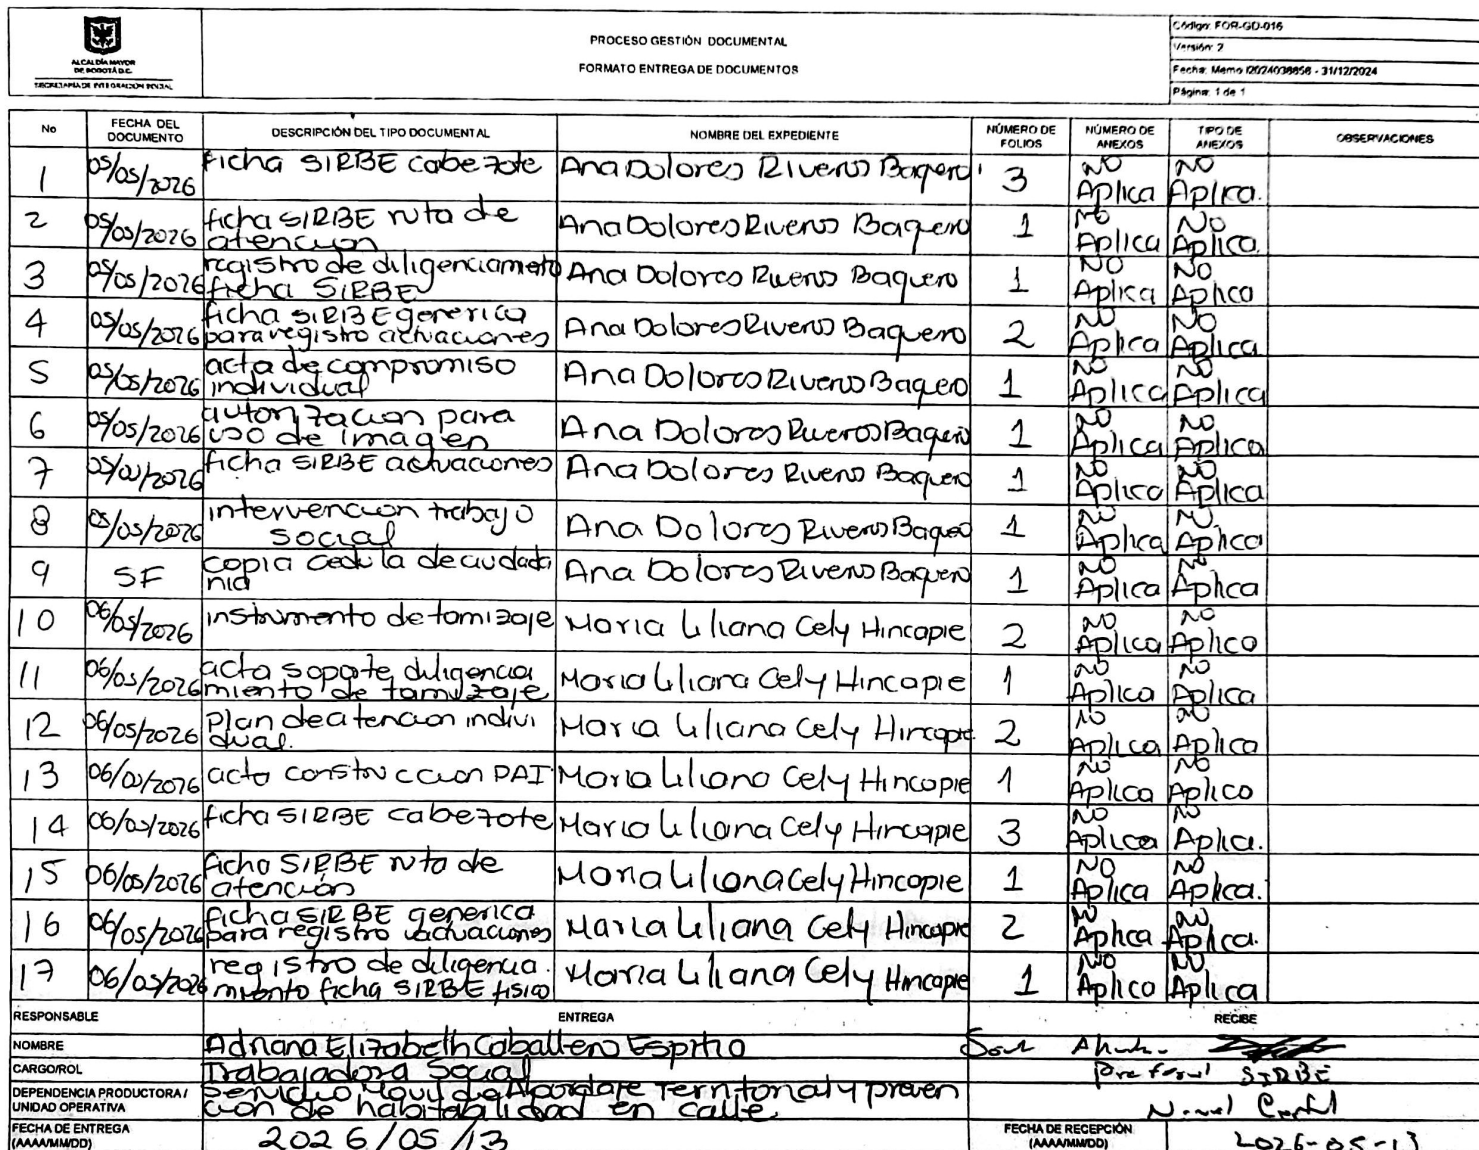 ALCALDÍA MAYOR
DE BOGOTÁ D.C.
SECRETARÍA DE INTEGRACIÓN SOCIAL
PROCESO GESTIÓN DOCUMENTAL
FORMATO ENTREGA DE DOCUMENTOS
Código: FOR-GD-016
Versión: 2
Fecha: Memo I2024038858 - 31/12/2024
Página: 1 de 1
No FECHA DEL DOCUMENTO DESCRIPCIÓN DEL TIPO DOCUMENTAL NOMBRE DEL EXPEDIENTE NÚMERO DE FOLIOS NÚMERO DE ANEXOS TIPO DE ANEXOS OBSERVACIONES
1 05/05/2026 ficha SIRBE cabezote Ana Dolores Riveros Baquero 3 NO Aplica NO Aplica.
2 05/05/2026 ficha SIRBE ruta de atencion Ana Dolores Riveros Baquero 1 NO Aplica NO Aplica.
3 05/05/2026 registro de diligenciamento ficha SIRBE Ana Dolores Riveros Baquero 1 NO Aplica NO Aplica
4 05/05/2026 ficha SIRBE generica para registro actuaciones Ana Dolores Riveros Baquero 2 NO Aplica NO Aplica
5 05/05/2026 acta de compromiso individual Ana Dolores Riveros Baquero 1 NO Aplica NO Aplica
6 05/05/2026 autorizacion para uso de imagen Ana Dolores Riveros Baquero 1 NO Aplica NO Aplica
7 05/05/2026 ficha SIRBE actuaciones Ana Dolores Riveros Baquero 1 NO Aplica NO Aplica
8 05/05/2026 intervencion trabajo social Ana Dolores Riveros Baquero 1 NO Aplica NO Aplica
9 SF copia cedula de ciudadania Ana Dolores Riveros Baquero 1 NO Aplica NO Aplica
10 06/05/2026 instrumento de tamizaje Maria Liliana Cely Hincapie 2 NO Aplica NO Aplica
11 06/05/2026 acta soporte diligenciamiento de tamizaje Maria Liliana Cely Hincapie 1 NO Aplica NO Aplica
12 06/05/2026 Plan de atencion individual. Maria Liliana Cely Hincapie 2 NO Aplica NO Aplica
13 06/05/2026 acta construccion PAI Maria Liliana Cely Hincapie 1 NO Aplica NO Aplica
14 06/05/2026 ficha SIRBE cabezote Maria Liliana Cely Hincapie 3 NO Aplica NO Aplica.
15 06/05/2026 ficha SIRBE ruta de atención Maria Liliana Cely Hincapie 1 NO Aplica NO Aplica.
16 06/05/2026 ficha SIRBE generica para registro actuaciones Maria Liliana Cely Hincapie 2 NO Aplica NO Aplica.
17 06/05/2026 registro de diligenciamiento ficha SIRBE fisico Maria Liliana Cely Hincapie 1 NO Aplica NO Aplica
RESPONSABLE ENTREGA RECIBE
NOMBRE Adriana Elizabeth Caballero Espitia
CARGO/ROL Trabajadora Social SIRBE
DEPENDENCIA PRODUCTORA / UNIDAD OPERATIVA Servicio Movil de Abordaje Territorial y prevencion de habitabilidad en calle. Nivel Central
FECHA DE ENTREGA (AAAA/MM/DD) 2026/05/13 FECHA DE RECEPCIÓN (AAAA/MM/DD) 2026-05-13